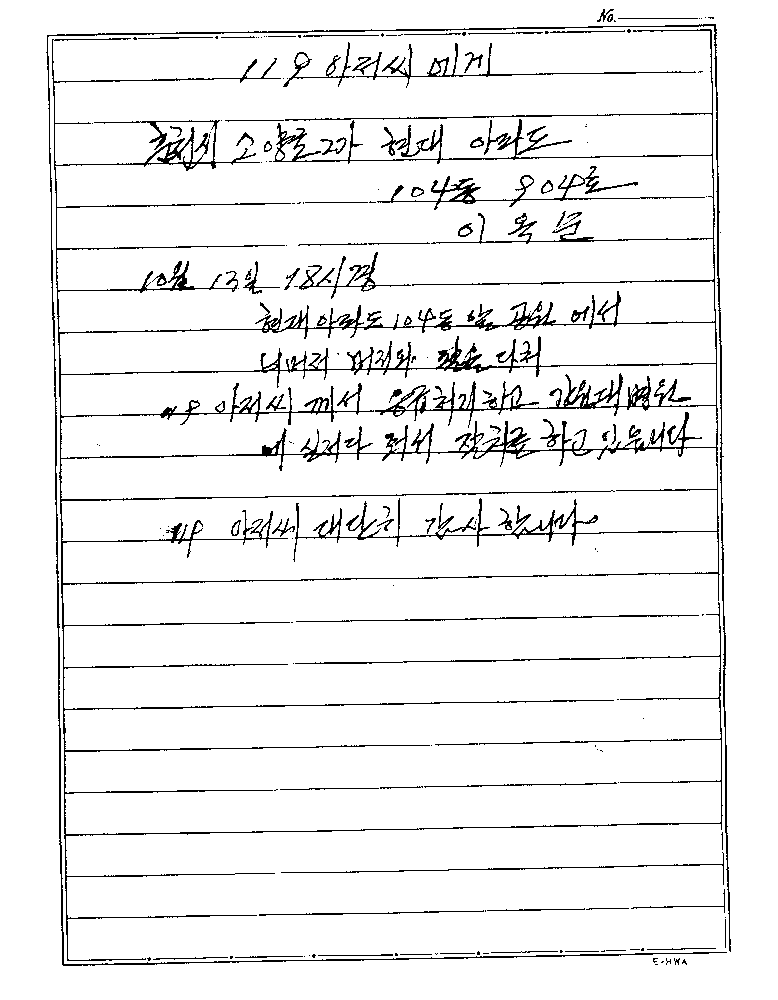 No.
119 아저씨 에게
춘천시 소양로2가 현대 아파트
104동 904호
이 옥 분
10월 13일 18시경
현대아파트 104동 앞 공원 에서
너머저 머리와 팔을 다처
119 아저씨 께서 응급처치하고 강원대병원
에 실려다 줘서 잘치료 하고 있읍니다
119 아저씨 대단히 감사 합니다.
E-HWA